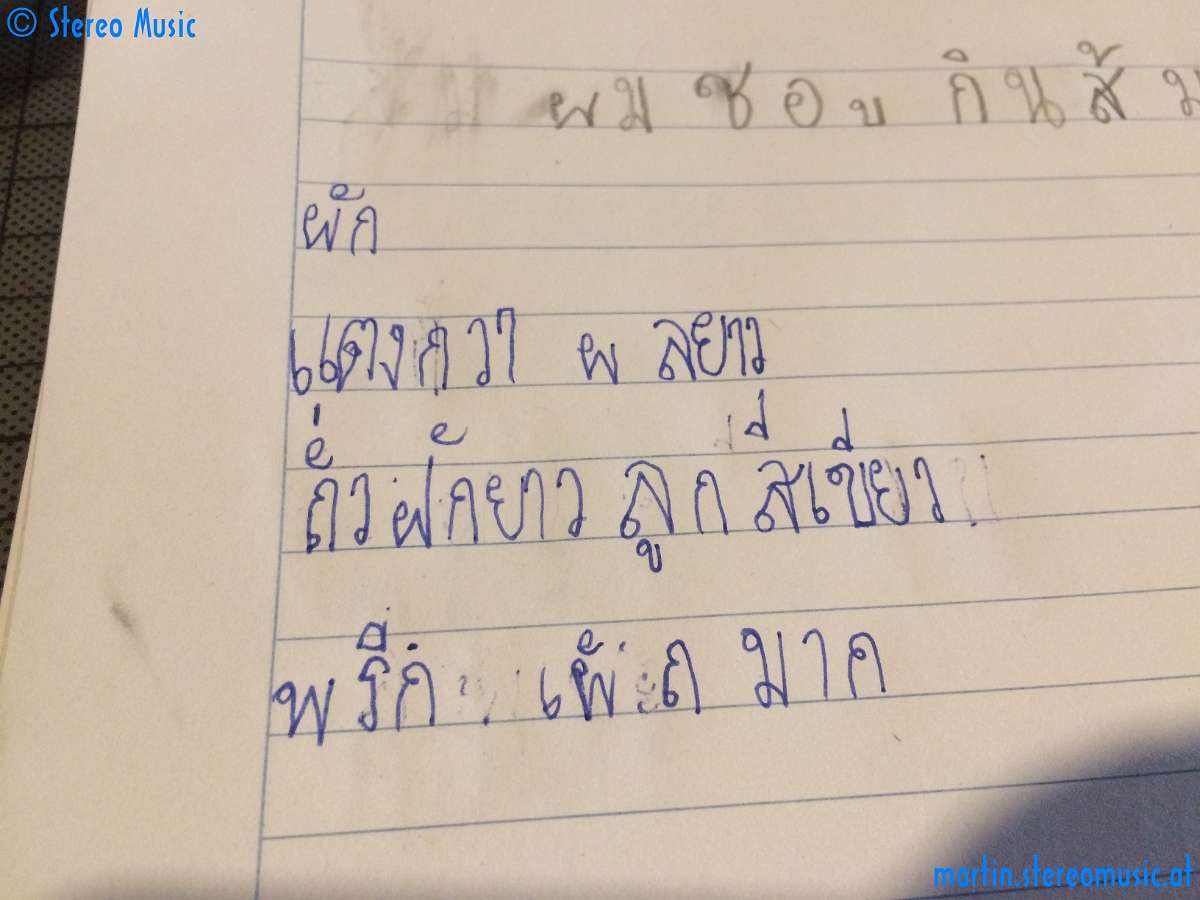 © Stereo Music
ผมชอบ กินส้ม
ผัก
แตงกวา ผลยาว
ถั่วฝักยาว ลูก สีเขียว
พริก มาก
martin.stereomusic.at